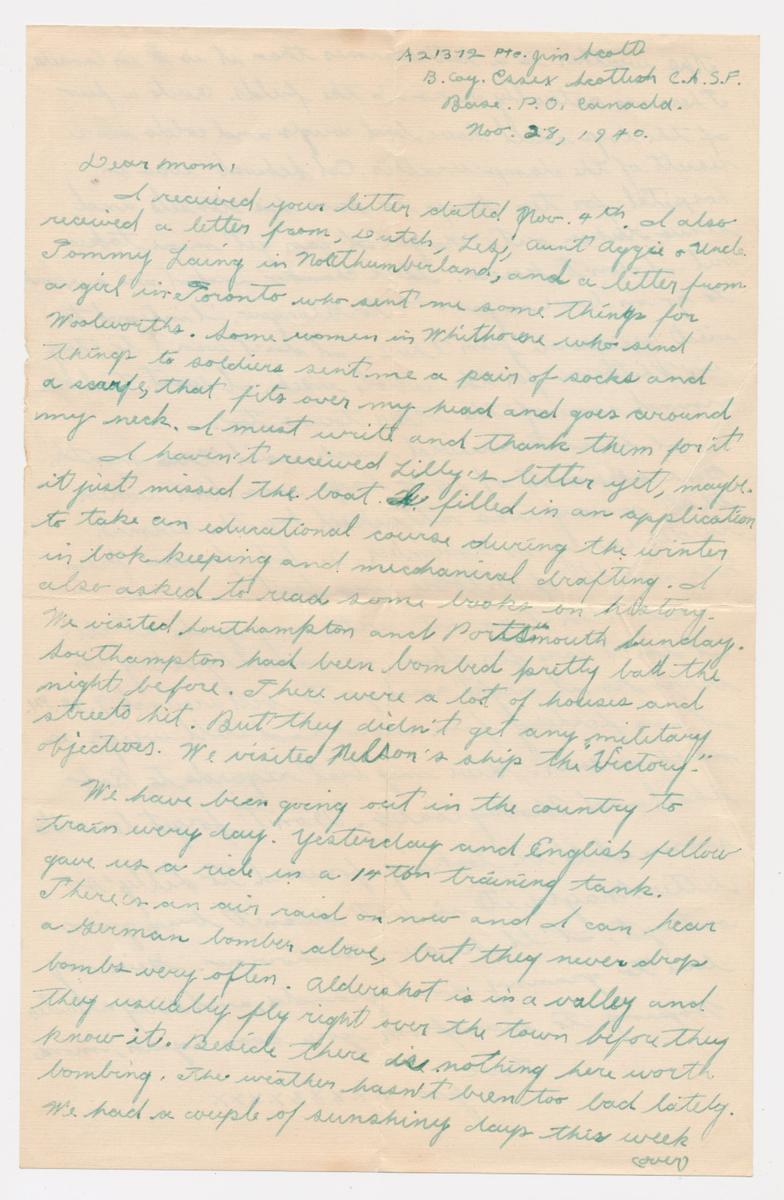 A21372 Pte. Jim Scott
B. Coy. Essex Scottish C.A.S.F.
Base. P.O. Canada.
Nov. 28, 1940.
Dear Mom,
I received your letter dated Nov. 4th. I also
received a letter from, Dutch, Les, aunt Aggie & Uncle
Tommy Laing in Northumberland, and a letter from
a girl in Toronto who sent me some things for
Woolworths. Some women in Whithorne who send
things to soldiers sent me a pair of socks and
a scarfe, that fits over my head and goes around
my neck. I must write and thank them for it
I haven't received Lilly's letter yet, maybe.
it just missed the boat. I filled in an application
to take an educational course during the winter
in book keeping and mechanical drafting. I
also asked to read some books on history.
We visited Southampton and Portsmouth Sunday.
Southampton had been bombed pretty bad the
night before. There were a lot of houses and
streets hit. But they didn't get any military
objectives. We visited Nelson's ship the "Victory."
We have been going out in the country to
train every day. Yesterday and English fellow
gave us a ride in a 14 ton training tank.
There is an air raid on now and I can hear
a German bomber above, but they never drop
bombs very often. Aldershot is in a valley and
they usually fly right over the town before they
know it. Beside there is nothing here worth
bombing. The weather hasn't been too bad lately.
We had a couple of sunshiny days this week
(over)